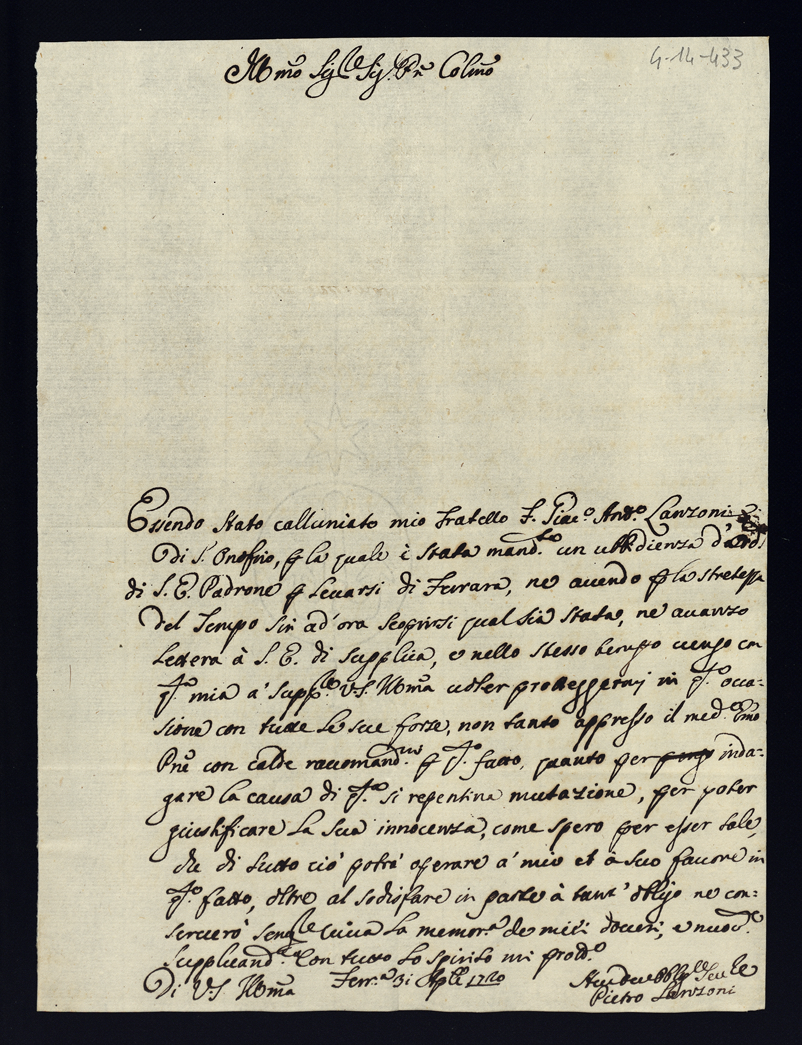 4-14-433
Illmo Sigre Sig. Pne Colmo
Essendo stato calluniato mio Fratello F. Giac.o Ant.o Lanzoni
Di S. Onofrio, p la quale è stata mand.ta un ubbidienza d'
di S. E. Padrone p levarsi di Ferrara, ne avendo p la stretezza
del Tempo sin ad'ora scoprirsi qual sia stata, ne avanzo
Lettera à S. E. di supplica, e nello stesso tempo vengo con
q.ta mia a' supp.re V.S. Illma voler proteggermi in q.ta occa-
sione con tutte le sue forze, non tanto appresso il med.o Emo
Pne con calde raccomand.ni p q.to fatto, quanto per inda-
gare la causa di q.ta si repentina mutazione, per poter
giustificare la sua innocenza, come spero per esser tale,
che di tutto ciò potrà operare a' mio et à suo favore in
q.to fatto, oltre al sodisfare in parte à tant' obligo ne con-
serverò semp.re viva la memor.a de miei doveri, e nuov.te
supplicand.la con tutto lo spirito mi prot.o
Di V.S. Illma Ferr.a 3i Aple 1720
Hu Dev Obblg.mo Ser.re
Pietro Lanzoni